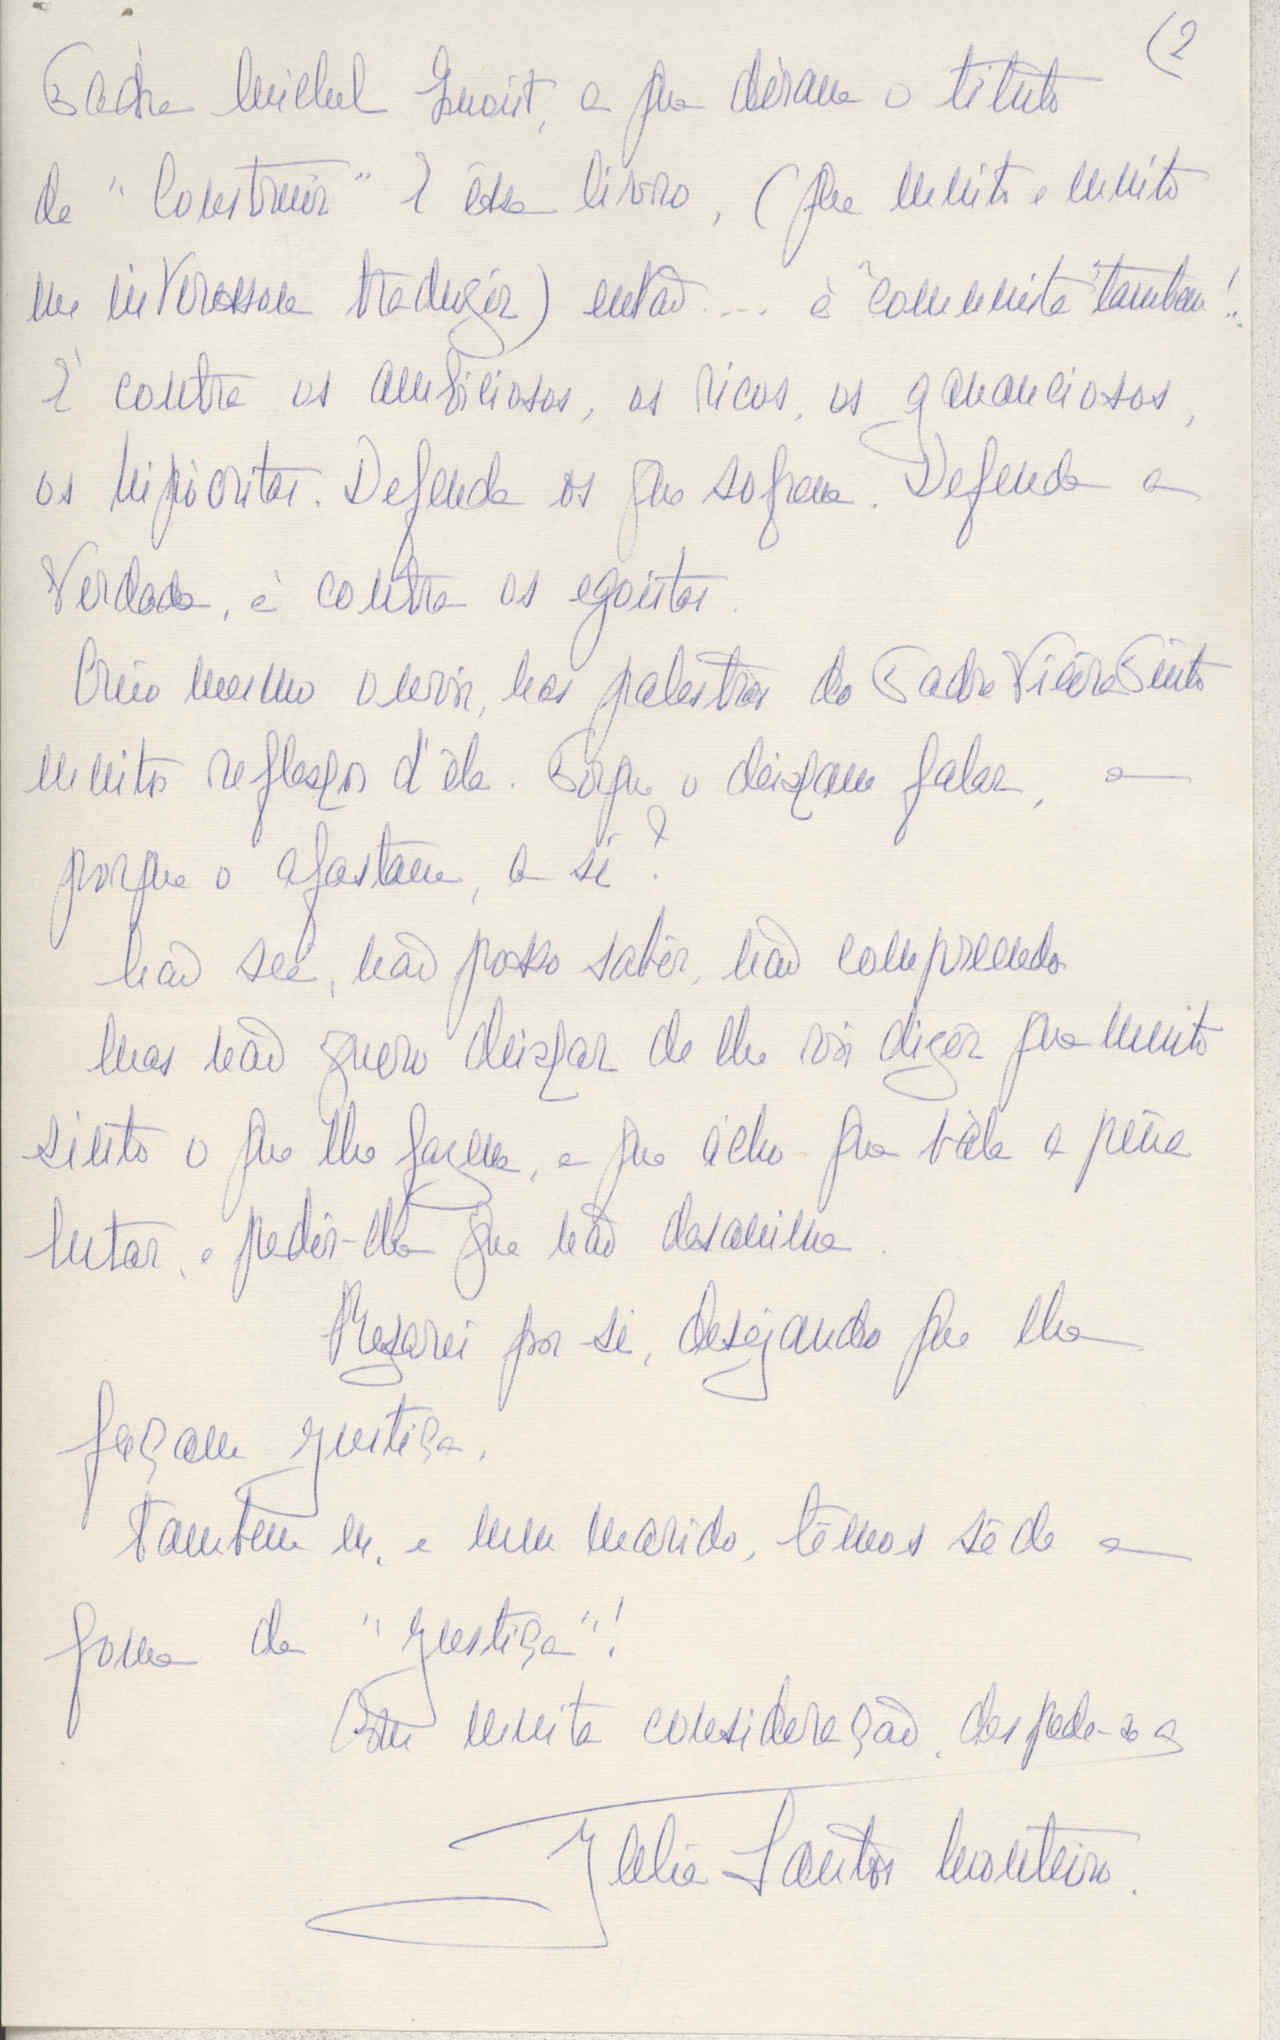 (2
Padre Michel Quoist, a que déram o titulo
de "Construir" E êsse livro, (que muito e muito
me interessava traduzir) então .... é "comunista" tambem!..
E' contra os ambiciosos, os ricos, os gananciosos,
os hipócritas. Defende os que sofrem. Defende a
Verdade, é contra os egoistas.
Creio mesmo ouvir, nas palestras do Padre Vieira Pinto
muitos reflexos d'êle. Porque o deixam falar, e
porque o afastam, a si?
Não sei, não posso sabêr, não compreendo.
Mas não quero deixar de lhe vir dizêr que muito
sinto o que lhe fazem, e que ácho que vále a pêna
lutar, e pedir-lhe que não desanime.
Rezarei por si, desejando que lhe
façam justiça.
Tambem eu, e meu marido, têmos sêde e
fome de "justiça"!
Com muita consideração, despede-se
Júlia Santos Monteiro.